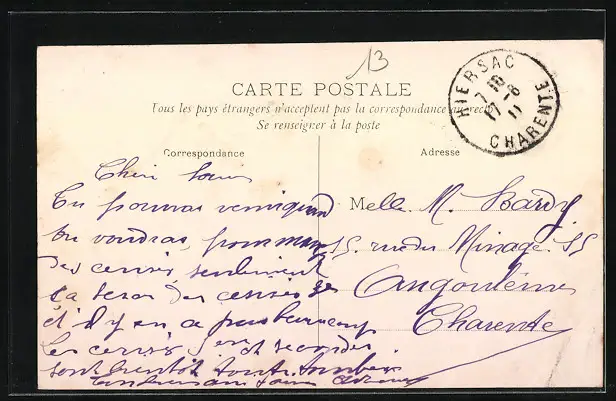 13
CARTE POSTALE
Tous les pays étrangers n'acceptent pas la correspondance au recto
Se renseigner à la poste
HIERSAC
7 10
17 -8
11
CHARENTE
Correspondance
Adresse
Cher
Tu pourras venir quand
tu voudras, pour manger
des cerises seulement
des cerises
et il y en a pas beaucoup
les cerises
sont bientôt toute tombées
Melle. M. Hardy
15. rue du Minage. 15
Angoulême
Charente